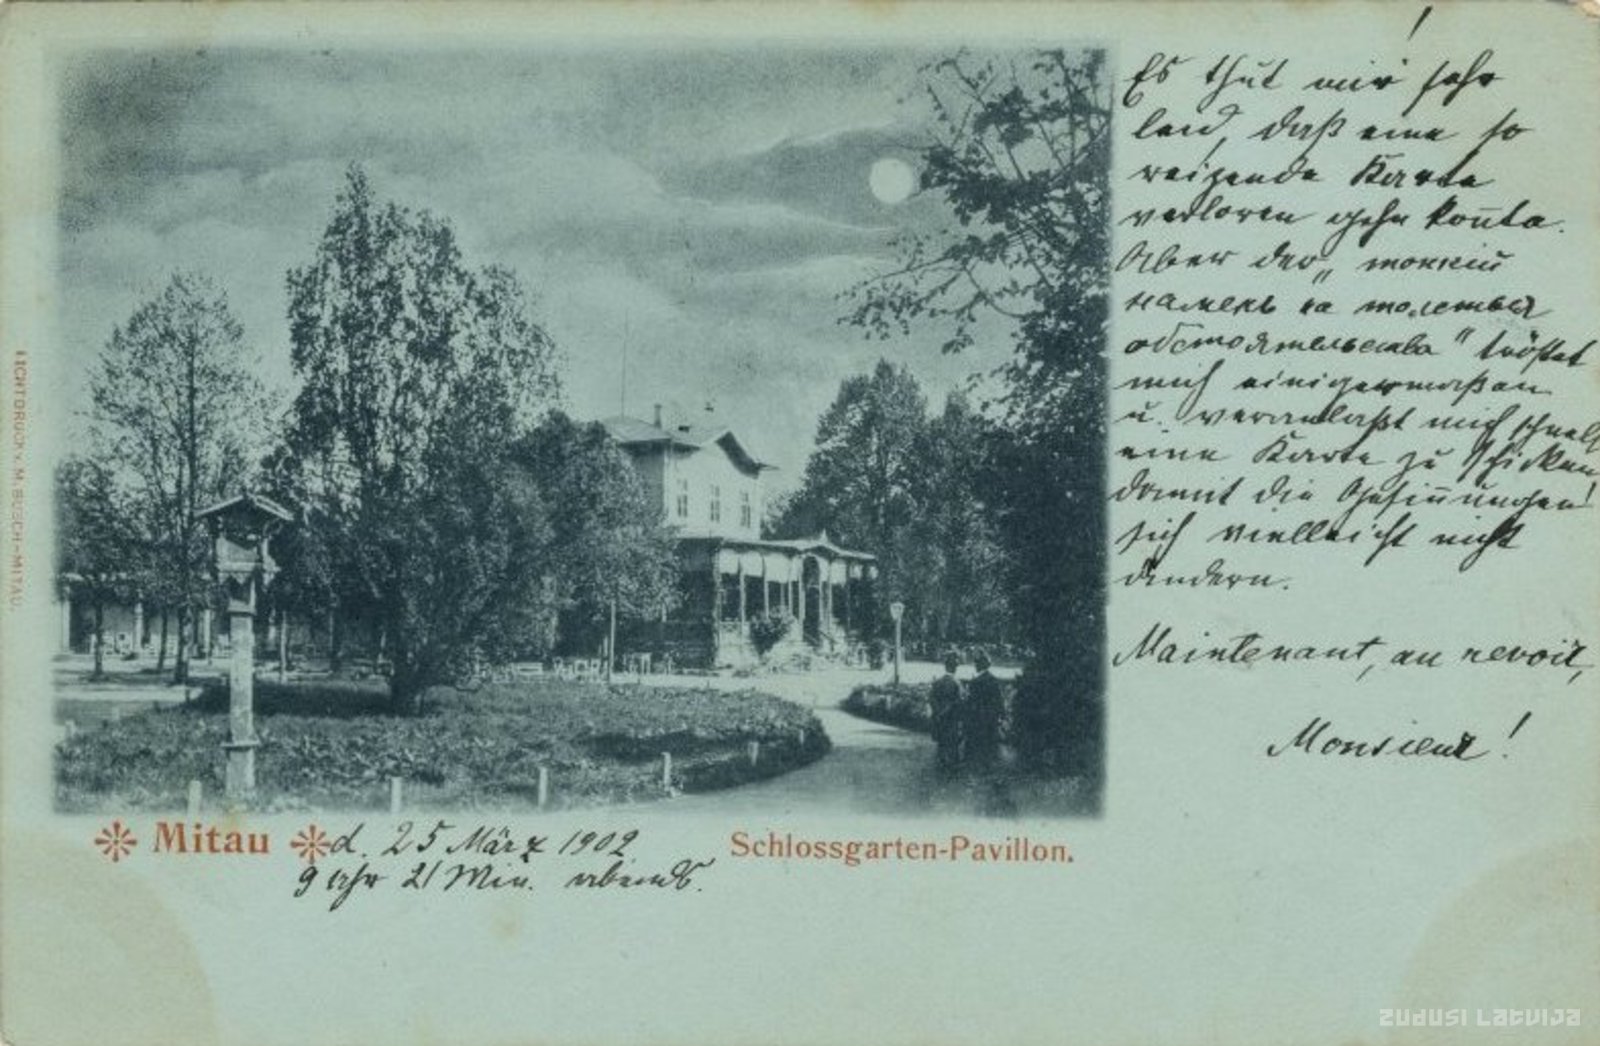 !
Es thut mir sehr
leid, daß eine so
reizende Karte
verloren gehn kon̄te.
Aber der „тонкий
намекъ на
обстоятельства" tröstet
mich einigermaßen
u. veranlaßt mich schnell
eine Karte zu schicken
damit die Gesin̄ungen!
sich vielleicht nicht
ändern.
Maintenant, au revoir,
Monsieur!
Mitau d. 25 März 1902
9 Uhr 21 Min. abends.
Schlossgarten-Pavillon.
LICHTDRUCK v. M. BUSCH-MITAU.
ZUDUSI LATVIJA